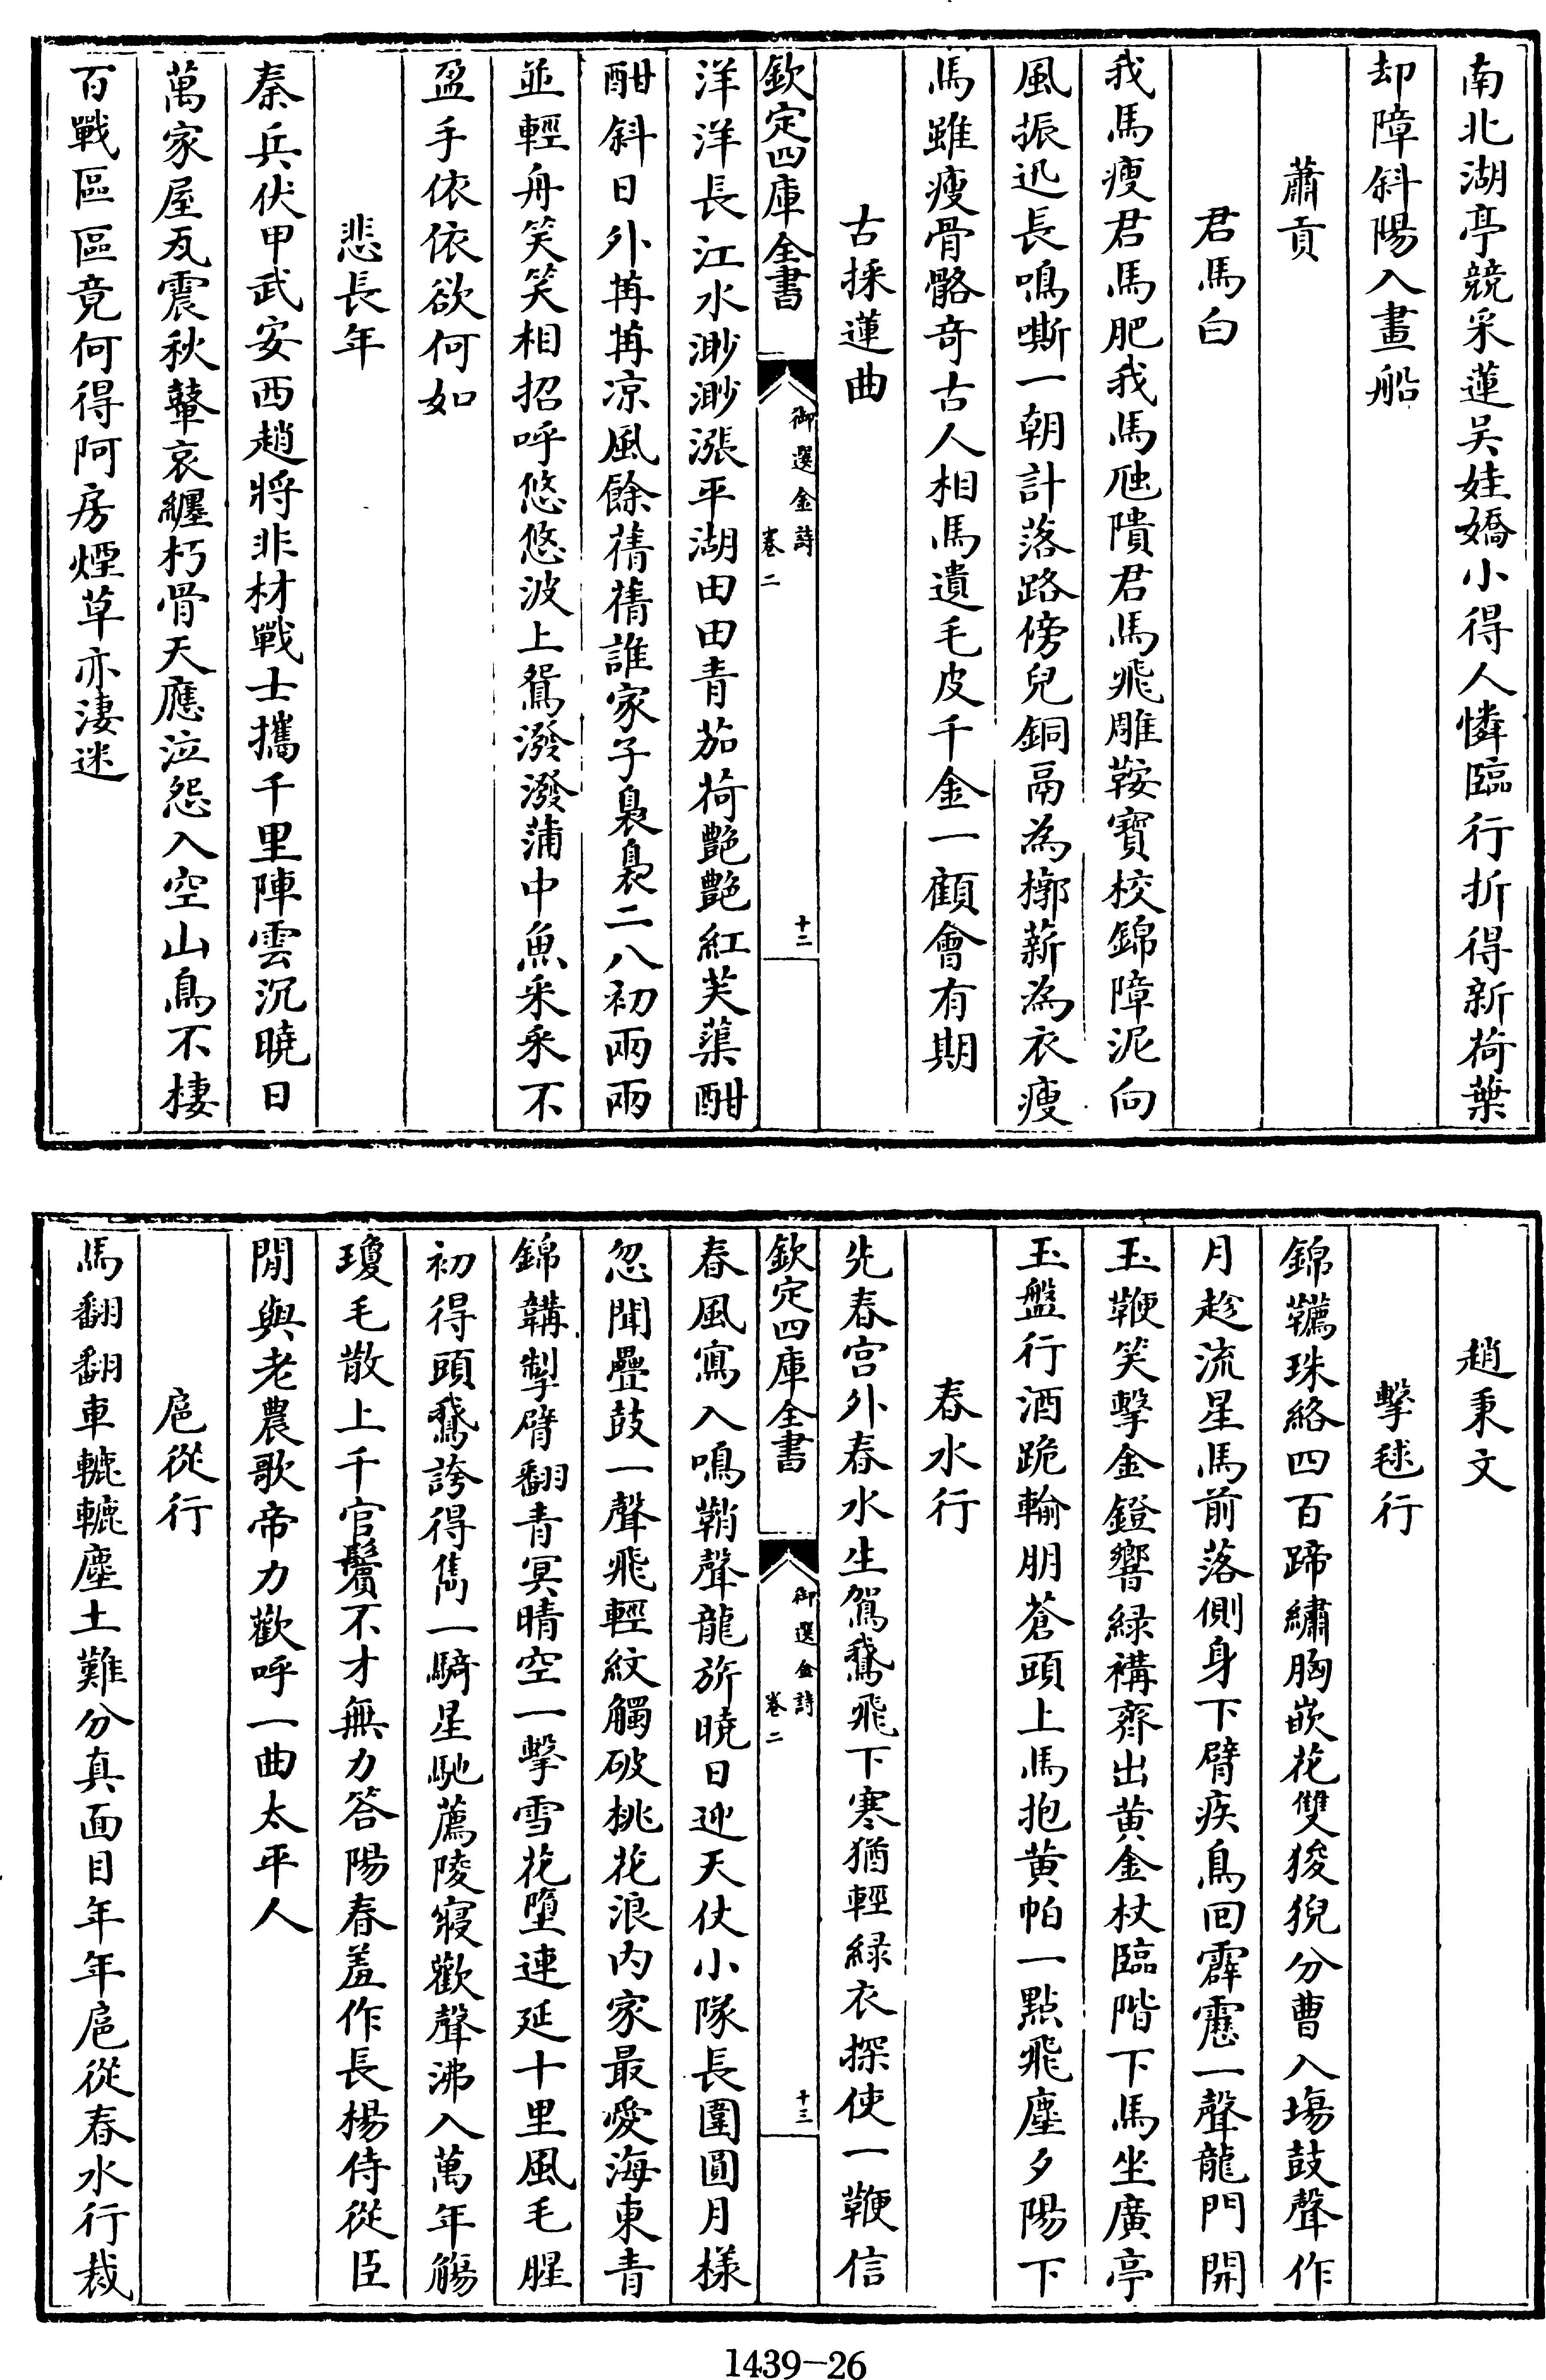 南北湖亭競采蓮吴娃嬌小得人憐臨行折得新荷葉
却障斜陽入畫船
蕭貢
君馬白
我馬瘦君馬肥我馬虺隤君馬飛雕鞍寶校錦障泥向
風振迅長鳴嘶一朝計落路傍兒銅鬲為槨薪為衣瘦
馬雖瘦骨骼奇古人相馬遺毛皮千金一顧會有期
古採蓮曲
欽定四庫全書
御選金詩
卷二
十二
洋洋長江水渺渺漲平湖田田青茄荷艶艶紅芙蕖酣
酣斜日外苒苒凉風餘蒨蒨誰家子裊裊二八初兩兩
並輕舟笑笑相招呼悠悠波上鴛潑潑蒲中魚采采不
盈手依依欲何如
悲長年
秦兵伏甲武安西趙將非材戰士攜千里陣雲沉曉日
萬家屋瓦震秋鼙哀纒朽骨天應泣怨入空山鳥不棲
百戰區區竟何得阿房煙草亦淒迷
趙秉文
擊毬行
錦韉珠絡四百蹄繡胸嵌花雙狻猊分曹入塲鼓聲作
月趁流星馬前落側身下臂疾鳥回霹靂一聲龍門開
玉鞭笑擊金鐙響緑褠齊出黄金杖臨階下馬坐廣亭
玉盤行酒跪輸朋蒼頭上馬抱黄帕一點飛塵夕陽下
春水行
先春宫外春水生鴐鵞飛下寒猶輕緑衣探使一鞭信
欽定四庫全書
御選金詩
卷二
十三
春風寫入鳴鞘聲龍旂曉日迎天仗小隊長圍圓月様
忽聞疊鼓一聲飛輕紋觸破桃花浪内家最愛海東青
錦韝掣臂翻青冥晴空一擊雪花墮連延十里風毛腥
初得頭鵞誇得雋一騎星馳薦陵寢歡聲沸入萬年觴
瓊毛散上千官鬢不才無力答陽春羞作長楊侍從臣
閒與老農歌帝力歡呼一曲太平人
扈從行
馬翻翻車轆轆塵土難分真面目年年扈從春水行裁
1439-26